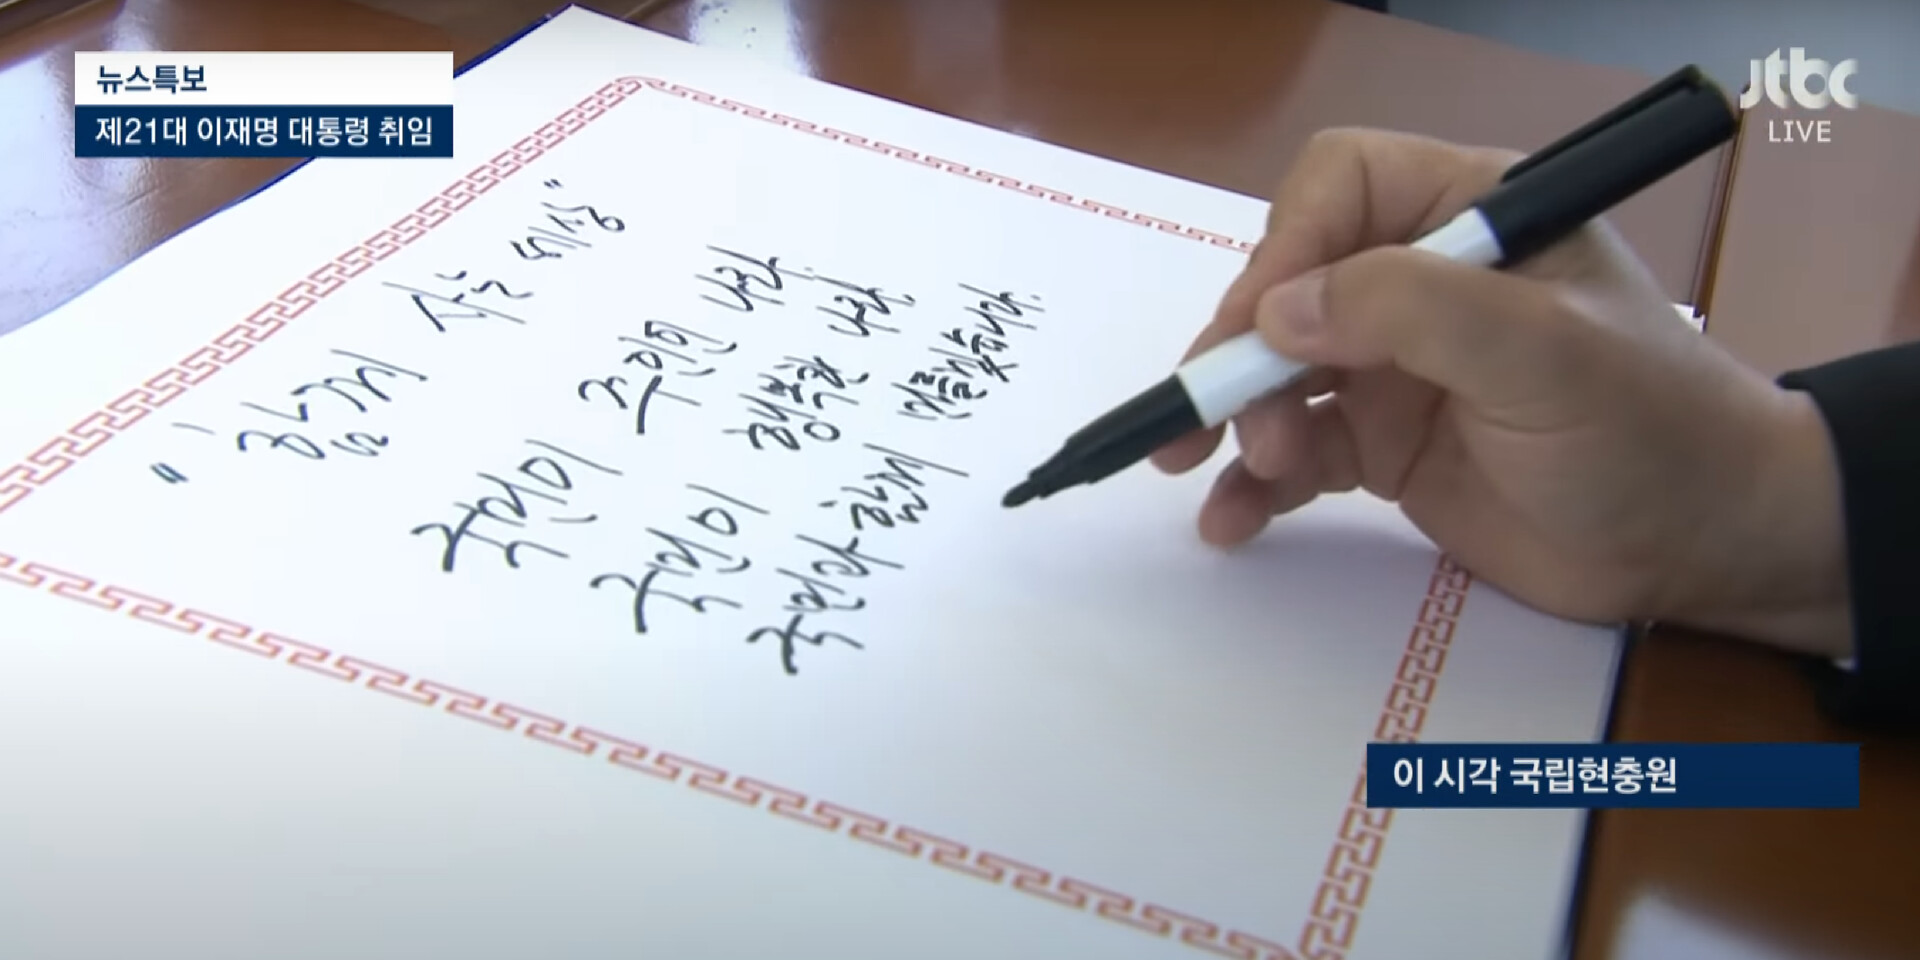 뉴스특보
제21대 이재명 대통령 취임
jtbc
LIVE
"함께 사는 세상"
국민이 주인인 나라,
국민이 행복한 나라,
국민과 함께 만들겠습니다.
이 시각 국립현충원